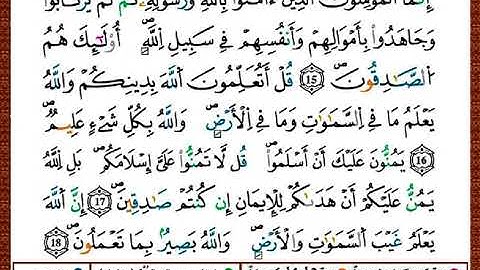 إِنَّمَا الْمُؤْمِنُونَ الَّذِينَ آمَنُوا بِاللَّهِ وَرَسُولِهِ ثُمَّ لَمْ يَرْتَابُوا
وَجَاهَدُوا بِأَمْوَالِهِمْ وَأَنْفُسِهِمْ فِي سَبِيلِ اللَّهِ ۚ أُولَٰئِكَ هُمُ
الصَّادِقُونَ ⑮ قُلْ أَتُعَلِّمُونَ اللَّهَ بِدِينِكُمْ وَاللَّهُ
يَعْلَمُ مَا فِي السَّمَاوَاتِ وَمَا فِي الْأَرْضِ ۚ وَاللَّهُ بِكُلِّ شَيْءٍ عَلِيمٌ
⑯ يَمُنُّونَ عَلَيْكَ أَنْ أَسْلَمُوا ۖ قُل لَّا تَمُنُّوا عَلَيَّ إِسْلَامَكُم ۖ بَلِ اللَّهُ
يَمُنُّ عَلَيْكُمْ أَنْ هَدَاكُمْ لِلْإِيمَانِ إِن كُنتُمْ صَادِقِينَ ⑰ إِنَّ اللَّهَ
يَعْلَمُ غَيْبَ السَّمَاوَاتِ وَالْأَرْضِ ۚ وَاللَّهُ بَصِيرٌ بِمَا تَعْمَلُونَ ⑱